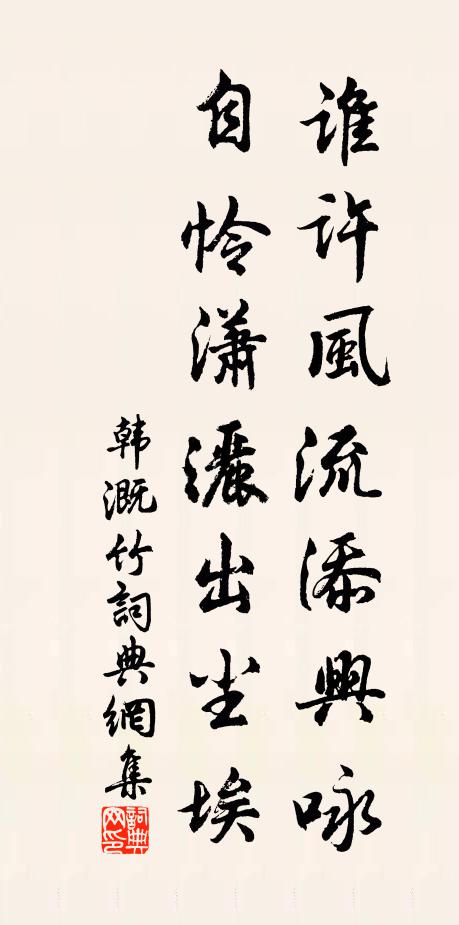 誰許風流添興咏
自怜瀟灑出尘埃
韩溉竹詞典網集
詞典網印